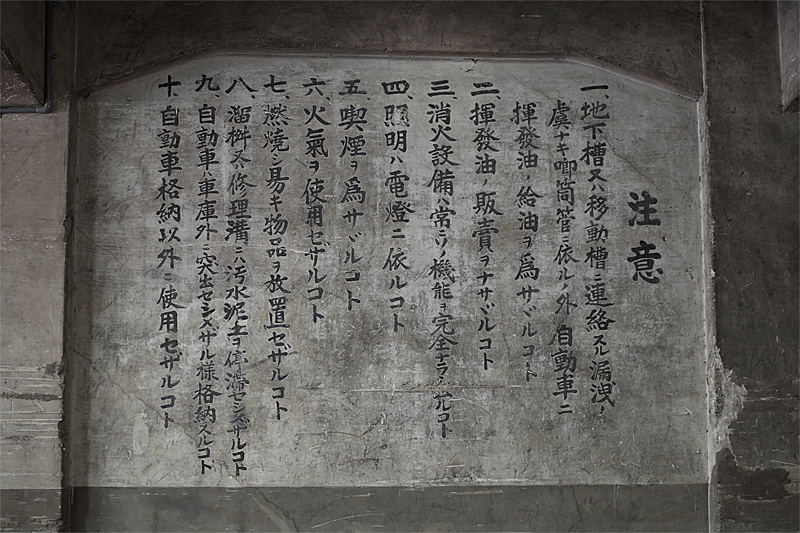 注意
一、地下槽又ハ移動槽ニ連絡スル漏洩ノ
虞ナキ喞筒管ニ依ルノ外自動車ニ
揮發油ノ給油ヲ爲サヾルコト
二、揮發油ノ販賣ヲナサヾルコト
三、消火設備ハ常ニソノ機能ヲ完全ナラシムルコト
四、照明ハ電燈ニ依ルコト
五、喫煙ヲ爲サヾルコト
六、火氣ヲ使用セザルコト
七、燃燒シ易キ物品ヲ放置セザルコト
八、溜桝又ハ修理溝ニハ汚水泥土ヲ停滯セシメザルコト
九、自動車ハ車庫外ニ突出セシメザル様格納スルコト
十、自動車格納以外ニ使用セザルコト